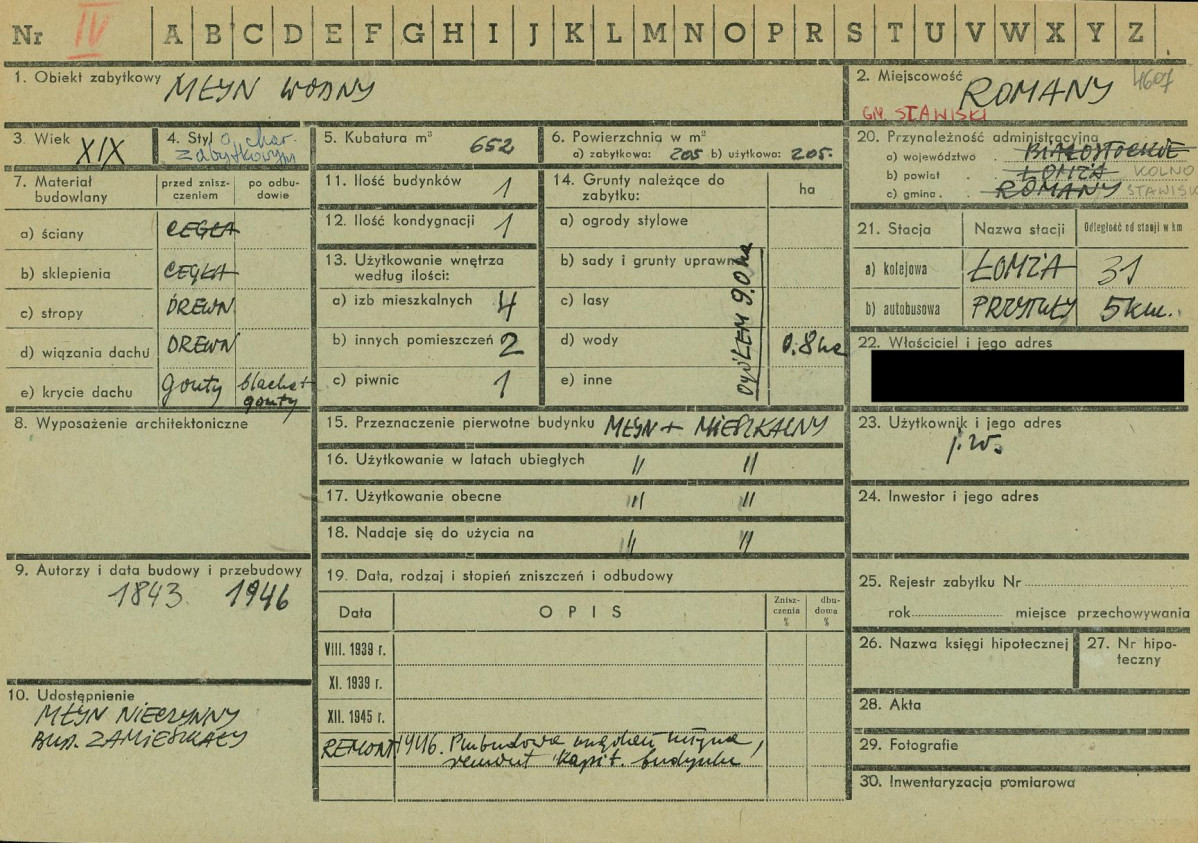 Nr IV A B C D E F G H I J K L M N O P R S T U V W X Y Z
1. Obiekt zabytkowy MŁYN WODNY
2. Miejscowość ROMANY 4607
GM. STAWISKI
3. Wiek XIX
4. Styl o char.
zabytkowym
5. Kubatura m³ 652
6. Powierzchnia w m²
a) zabytkowa: 205 b) użytkowa: 205.
20. Przynależność administracyjna
a) województwo BIAŁOSTOCKIE
b) powiat ŁOMŻA KOLNO
c) gmina ROMANY STAWISKI
7. Materiał budowlany
przed zniszczeniem
po odbudowie
a) ściany CEGŁA
b) sklepienia CEGŁA
c) stropy DREWN
d) wiązania dachu DREWN
e) krycie dachu gonty blacha+
gonty
11. Ilość budynków 1
12. Ilość kondygnacji 1
13. Użytkowanie wnętrza
według ilości:
a) izb mieszkalnych 4
b) innych pomieszczeń 2
c) piwnic 1
14. Grunty należące do
zabytku:
ha
a) ogrody stylowe
b) sady i grunty uprawne
c) lasy
d) wody 0.8 ha
e) inne
OGÓŁEM 9.0 ha
21. Stacja
Nazwa stacji
Odległość od stacji w km
a) kolejowa ŁOMŻA 31
b) autobusowa PRZYTUŁY 5 km.
22. Właściciel i jego adres
8. Wyposażenie architektoniczne
15. Przeznaczenie pierwotne budynku MŁYN + MIESZKALNY
16. Użytkowanie w latach ubiegłych // //
17. Użytkowanie obecne // //
18. Nadaje się do użycia na // //
23. Użytkownik i jego adres
j.w.
24. Inwestor i jego adres
9. Autorzy i data budowy i przebudowy
1843. 1946
19. Data, rodzaj i stopień zniszczeń i odbudowy
Data
OPIS
Zniszczenia %
dbudowa %
VIII. 1939 r.
XI. 1939 r.
XII. 1945 r.
REMONT 1946. Przebudowa urządzeń młyna,
remont kapit. budynku
25. Rejestr zabytku Nr
rok miejsce przechowywania
26. Nazwa księgi hipotecznej
27. Nr hipoteczny
10. Udostępnienie
MŁYN NIECZYNNY
BUD. ZAMIESZKAŁY
28. Akta
29. Fotografie
30. Inwentaryzacja pomiarowa